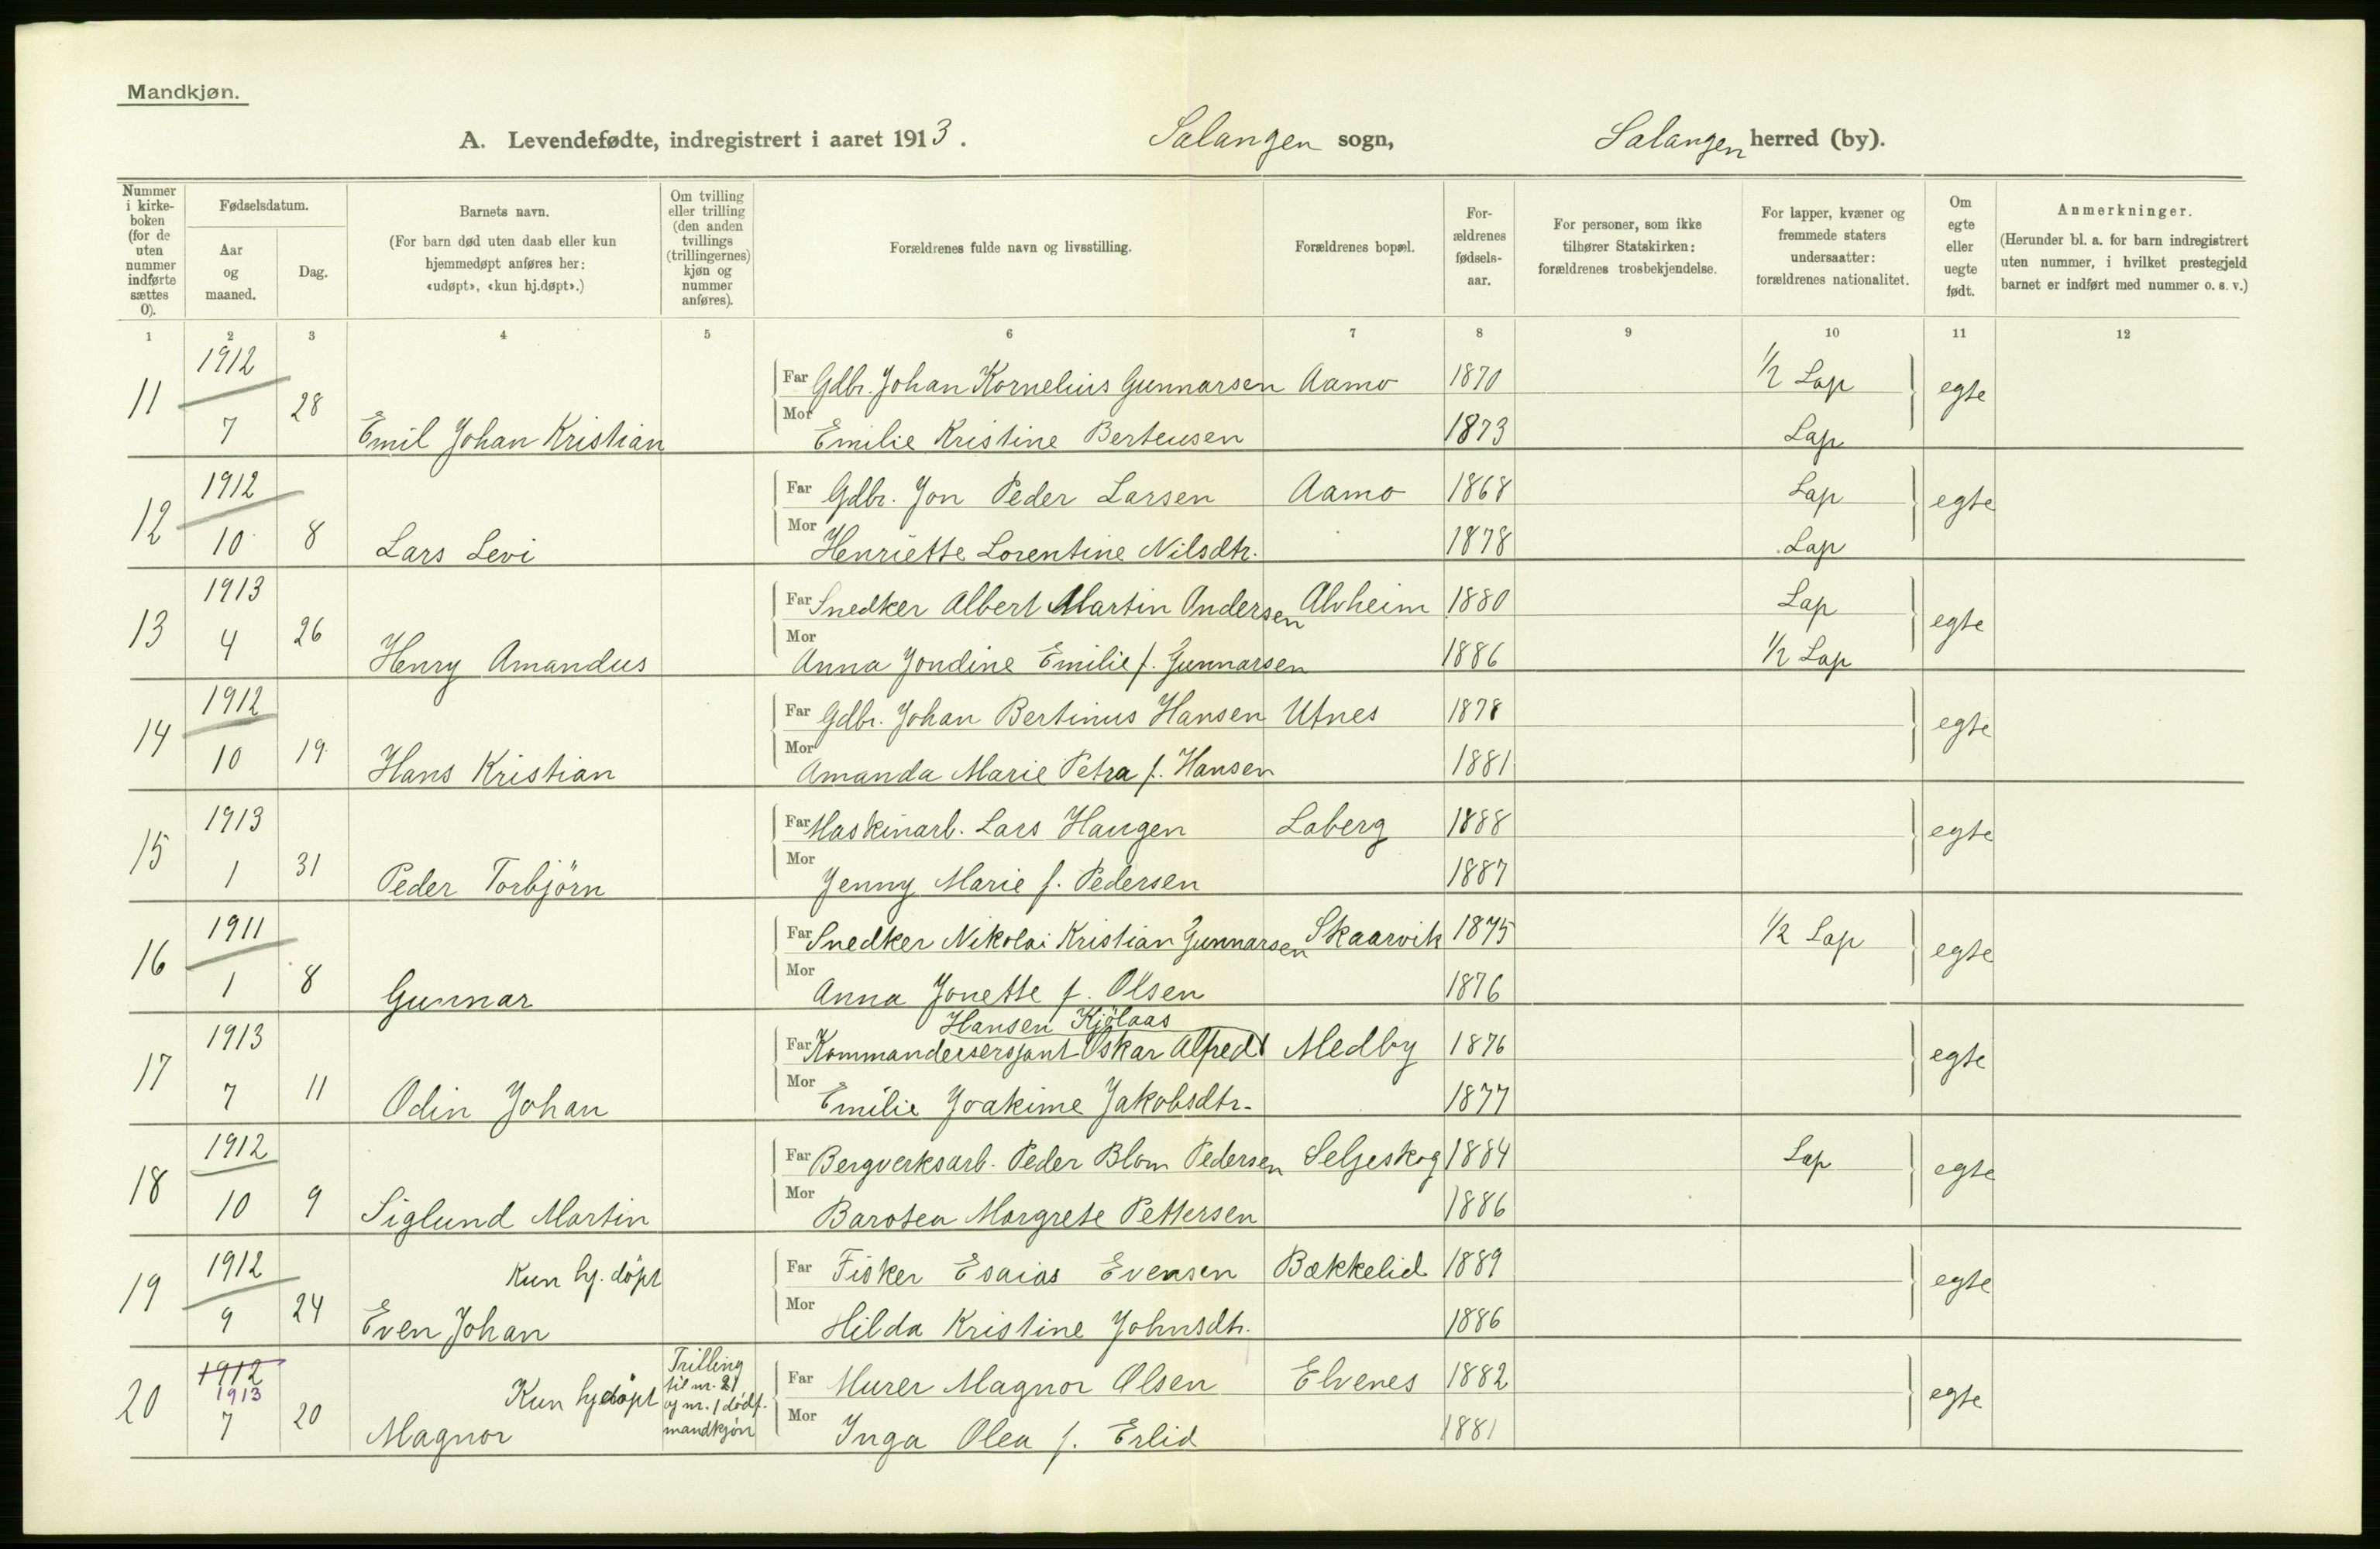 Mandkjøn.
A. Levendefødte, indregistrert i aaret 1913. Salangen sogn, Salangen herred (by).
Nummer i kirke-boken (for de uten nummer indførte sættes 0).
Fødselsdatum.
Aar og maaned.
Dag.
Barnets navn.
(For barn død uten daab eller kun hjemmedøpt anføres her: «udøpt», «kun hj.døpt».)
Om tvilling eller trilling (den anden tvillings (trillingernes) kjøn og nummer anføres).
Forældrenes fulde navn og livsstilling.
Forældrenes bopæl.
For-ældrenes fødsels-aar.
For personer, som ikke tilhører Statskirken: forældrenes trosbekjendelse.
For lapper, kvæner og fremmede staters undersaatter: forældrenes nationalitet.
Om egte eller uegte født.
Anmerkninger.
(Herunder bl. a. for barn indregistrert uten nummer, i hvilket prestegjeld barnet er indført med nummer o. s. v.)
1 2 3 4 5 6 7 8 9 10 11 12
11 1912 7 28 Emil Johan Kristian
Far Gdbr. Johan Kornelius Gunnarsen Aamo 1870 1/2 Lap egte
Mor Emilie Kristine Berteusen 1873 Lap
12 1912 10 8 Lars Levi
Far Gdbr. Jon Peder Larsen Aamo 1868 Lap egte
Mor Henriette Lorentine Nilsdtr. 1878 Lap
13 1913 4 26 Henry Amandus
Far Snedker Albert Martin Andersen Alvheim 1880 Lap egte
Mor Anna Jondine Emilie f. Gunnarsen 1886 1/2 Lap
14 1912 10 19 Hans Kristian
Far Gdbr. Johan Bertinus Hansen Utnes 1878 egte
Mor Amanda Marie Petra f. Hansen 1881
15 1913 1 31 Peder Torbjörn
Far Maskinarb. Lars Haugen Laberg 1888 egte
Mor Jenny Marie f. Pedersen 1887
16 1911 1 8 Gunnar
Far Snedker Nikolai Kristian Gunnarsen Skaarvik 1875 1/2 Lap egte
Mor Anna Jonette f. Olsen 1876
17 1913 7 11 Odin Johan
Hansen Kjölaas
Far Kommandersersjant Oskar Alfred Medby 1876 egte
Mor Emilie Joakime Jakobsdtr. 1877
18 1912 10 9 Siglund Martin
Far Bergverksarb. Peder Blom Pedersen Seljeskog 1884 Lap egte
Mor Barotea Margrete Pettersen 1886
19 1912 9 24 Kun hj. döpt
Even Johan
Far Fisker Esaias Evensen Bækkelid 1889 egte
Mor Hilda Kristine Johnsdtr. 1886
20 1912 1913 7 20 Kun hjedöpt
Magnor
Trilling
til nr. 21
og nr. 1 dödf.
mandkjön
Far Murer Magnor Olsen Elvenes 1882 egte
Mor Inga Olea f. Erlid 1881